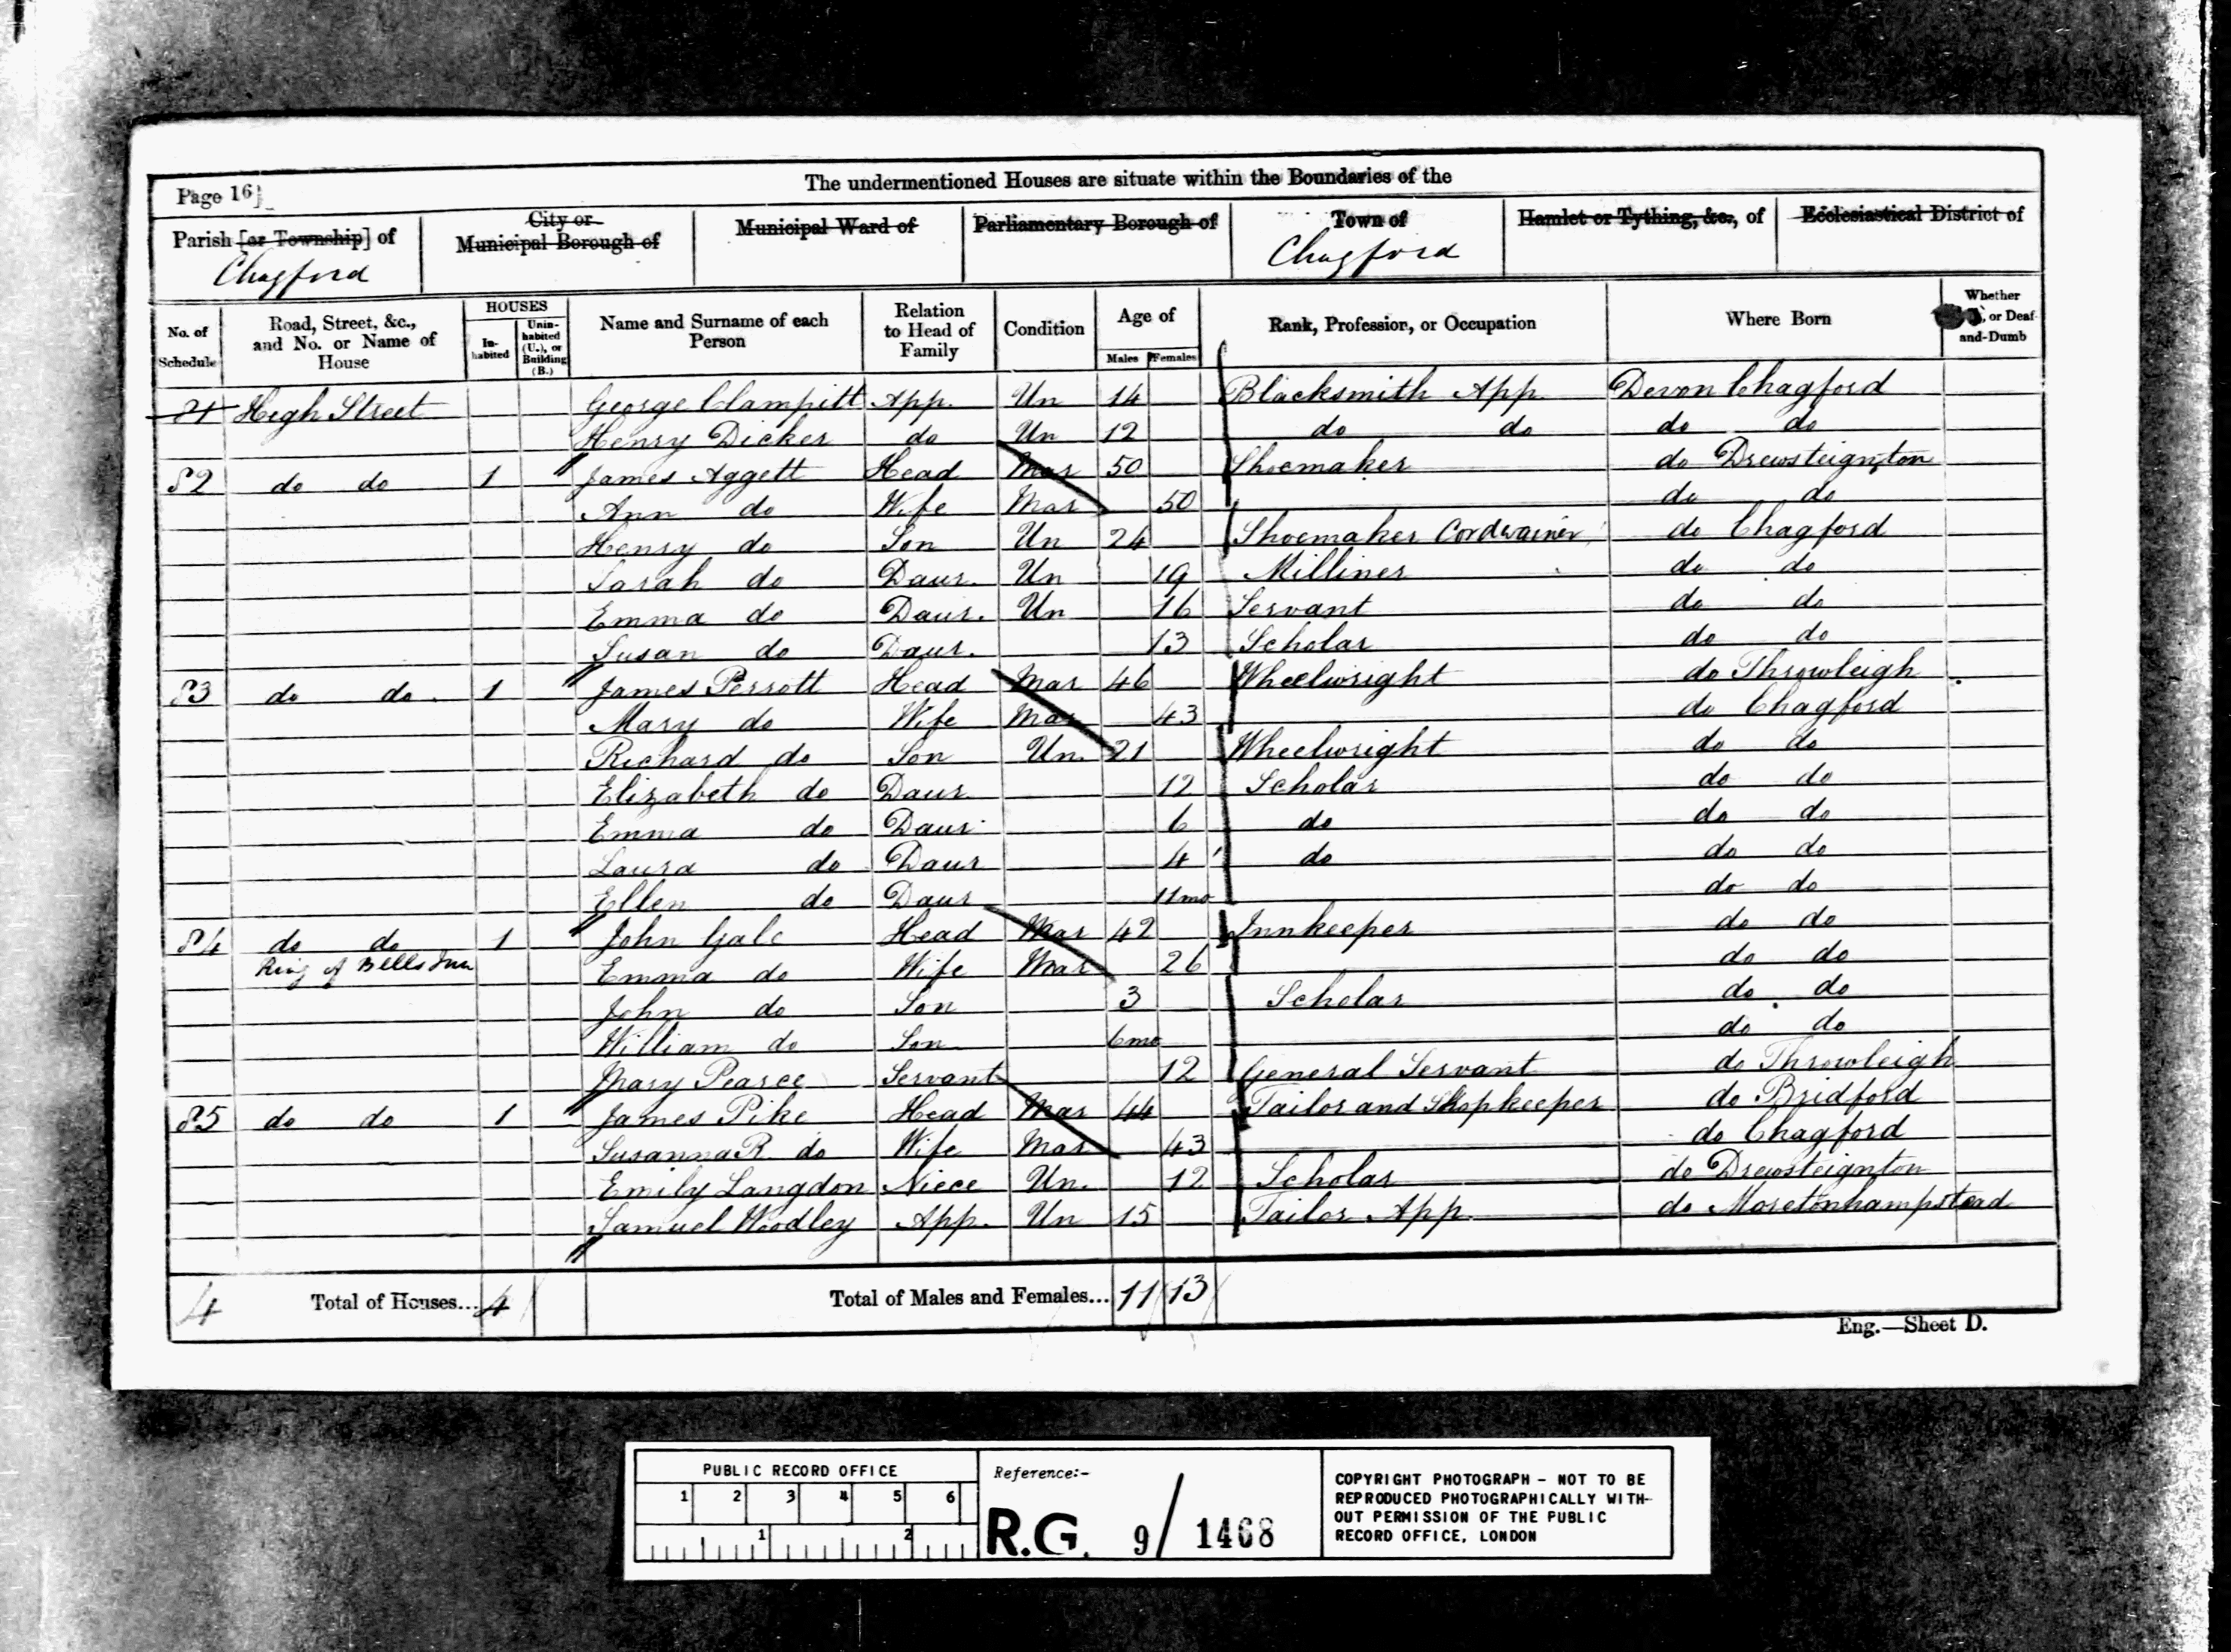 Page 16]
The undermentioned Houses are situate within the Boundaries of the
Parish [or Township] of
Chagford
City or
Municipal Borough of
Municipal Ward of
Parliamentary Borough of
Town of
Chagford
Hamlet or Tything, &c., of
Ecclesiastical District of
No. of Schedule
Road, Street, &c., and No. or Name of House
HOUSES
In-habited
Unin-habited (U.), or Building (B.)
Name and Surname of each Person
Relation to Head of Family
Condition
Age of
Males Females
Rank, Profession, or Occupation
Where Born
Whether , or Deaf-and-Dumb
81 High Street George Clampitt App. Un 14 Blacksmith App. Devon Chagford
Henry Dicker do Un 12 do do do do
82 do do 1 James Aggett Head Mar 50 Shoemaker do Drewsteignton
Ann do Wife Mar 50 do do
Henry do Son Un 24 Shoemaker Cordwainer do Chagford
Sarah do Daur. Un 19 Milliner do do
Emma do Daur. Un 16 Servant do do
Susan do Daur. 13 Scholar do do
83 do do. 1 James Perrott Head Mar 46 Wheelwright do Throwleigh
Mary do Wife Mar 43 do Chagford
Richard do Son Un. 21 Wheelwright do do
Elizabeth do Daur 12 Scholar do do
Emma do Daur 6 do do do
Laura do Daur 4 do do do
Ellen do Daur 11mo do do
84 do do 1 John Gale Head Mar 42 Innkeeper do do
Ring of Bells Inn Emma do Wife Mar 26 do do
John do Son 3 Scholar do do
William do Son 6mo do do
Mary Pearce Servant 12 General Servant do Throwleigh
85 do do 1 James Pike Head Mar 44 Tailor and Shopkeeper do Bridford
Susanna R. do Wife Mar 43 do Chagford
Emily Langdon Niece Un. 12 Scholar do Drewsteignton
Samuel Woodley App. Un 15 Tailor App. do Moretonhampstead
4 Total of Houses... 4 Total of Males and Females... 11 13
Eng.—Sheet D.
PUBLIC RECORD OFFICE
1 2 3 4 5 6
1 2
Reference:-
R.G. 9/1468
COPYRIGHT PHOTOGRAPH - NOT TO BE
REPRODUCED PHOTOGRAPHICALLY WITH-
OUT PERMISSION OF THE PUBLIC
RECORD OFFICE, LONDON